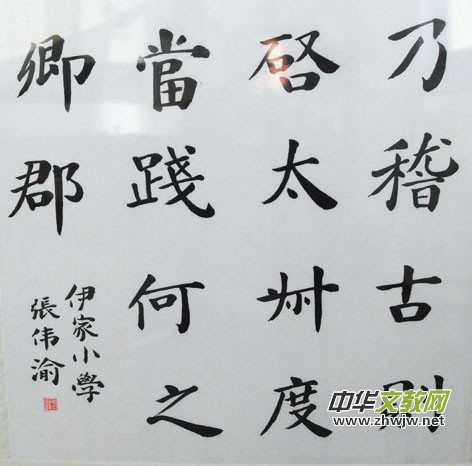 乃稽古則
啓太州度
當踐何之
卿郡
伊家小學
張伟渝
中华文教网
www.zhwjw.net